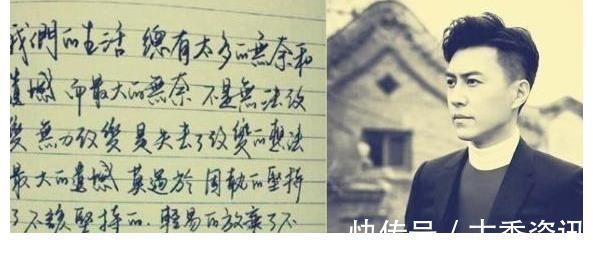 我們的生活 總有太多的無奈和
遺憾 而最大的無奈 不是無法改
變 無力改變 是失去了改變的想法
最大的遺憾 莫過於 固執的堅持
了不該堅持的.輕易的放棄了不
快传号 / 大秀资讯